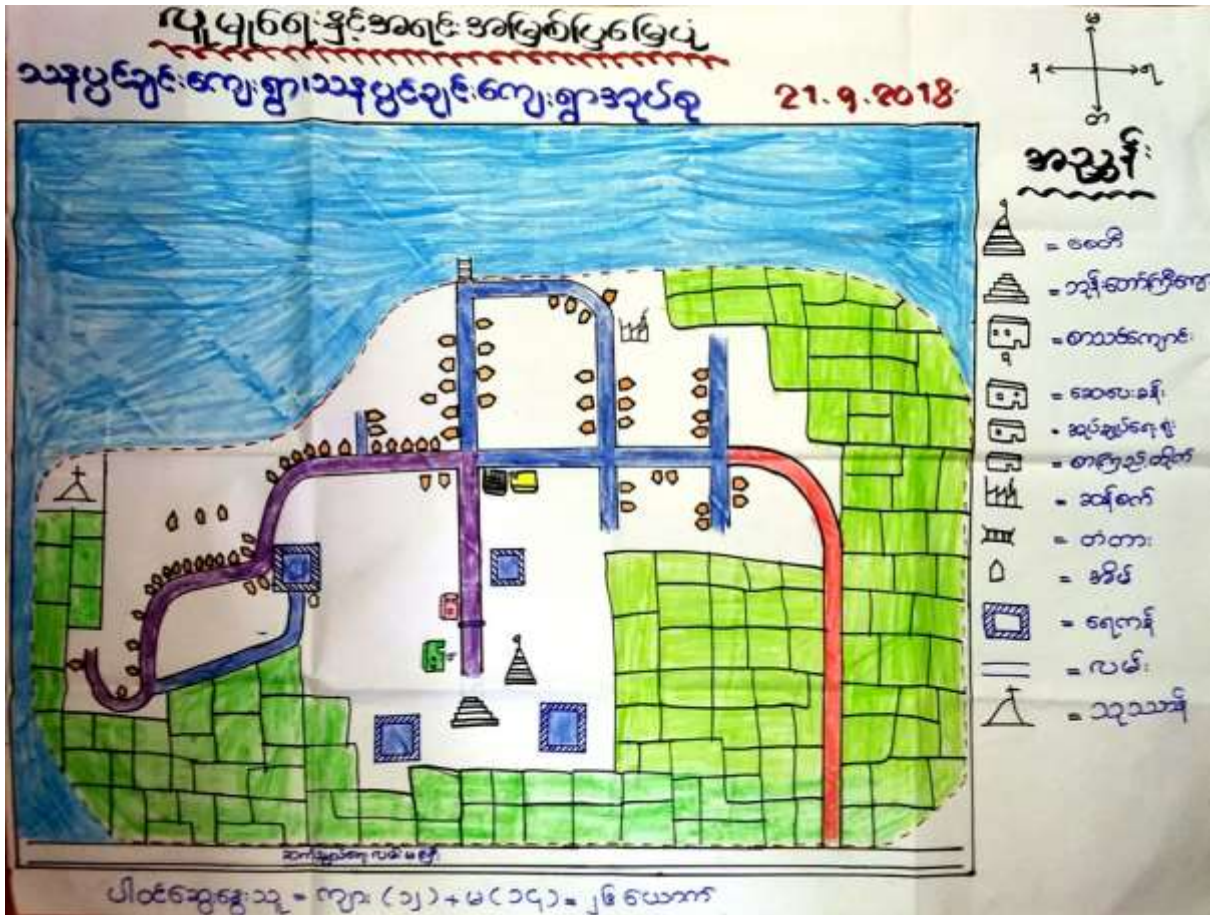 လူမှုရေးနှင့်အရင်းအမြစ်ပြမြေပုံ
သနပ္ပင်ချင်းကျေးရွာ၊ သနပ္ပင်ချင်းကျေးရွာအုပ်စု 21.9.2018
မ
န ရ
တ
အညွှန်း
= စေတီ
= ဘုန်းတော်ကြီးကျောင်း
= စာသင်ကျောင်း
= ဆေးပေးခန်း
= အုပ်ချုပ်ရေးရုံး
= စာကြည့်တိုက်
= ဆန်စက်
= တံတား
= အိမ်
= ရေကန်
= လမ်း
= သုဿာန်
ပါဝင်ဆွေးနွေးသူ = ကျား (၁၂) + မ (၁၄) = ၂၆ ယောက်